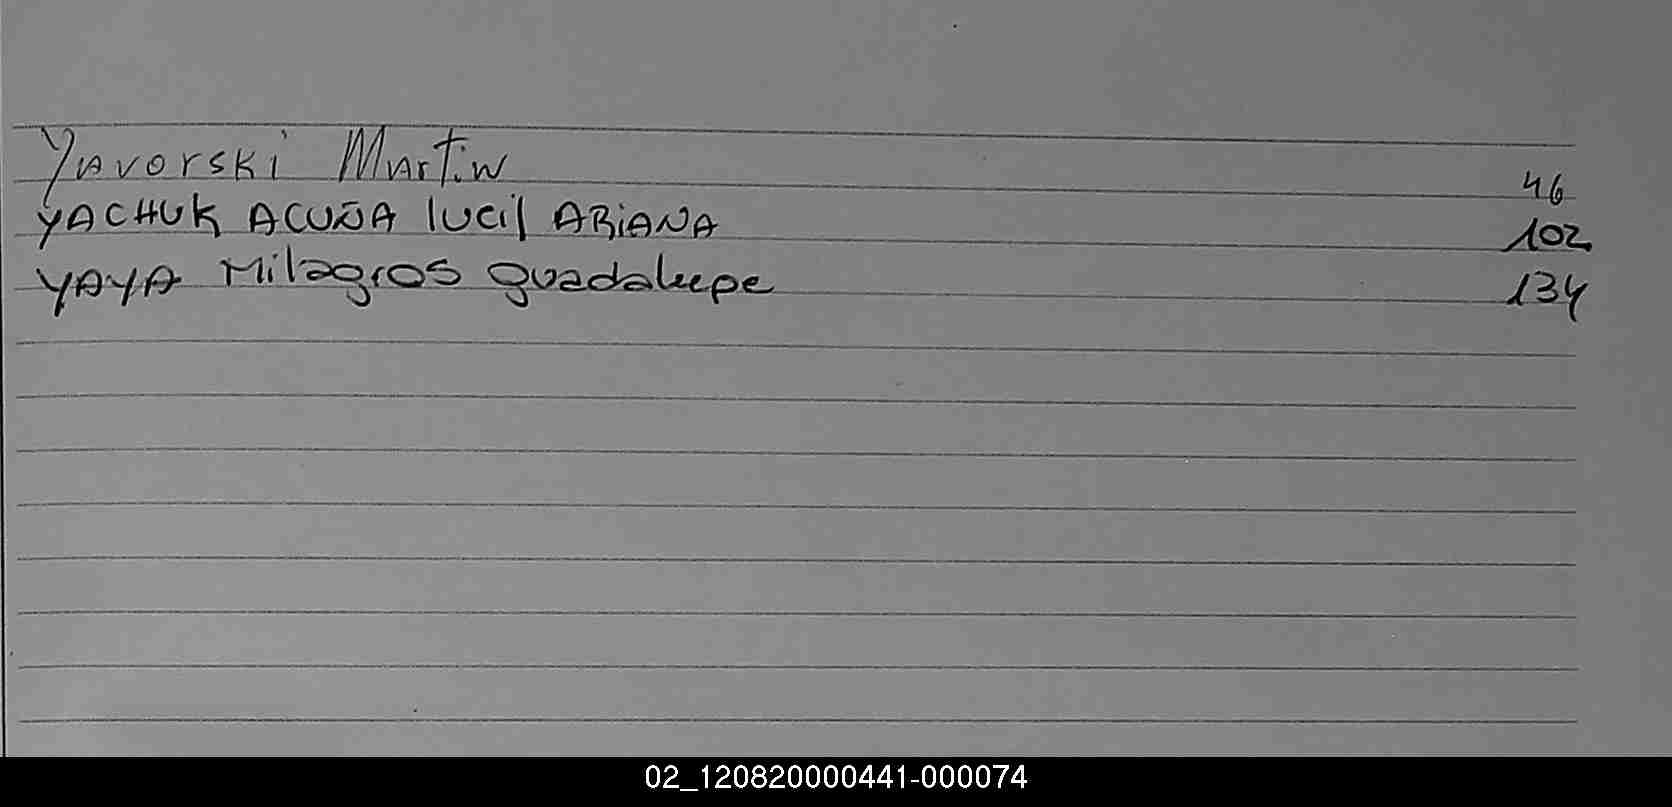 Yavorski Martin 46
YACHUK ACUÑA lucil ARiANA 102
YAYA Milagros guadalupe 134
02_120820000441-000074